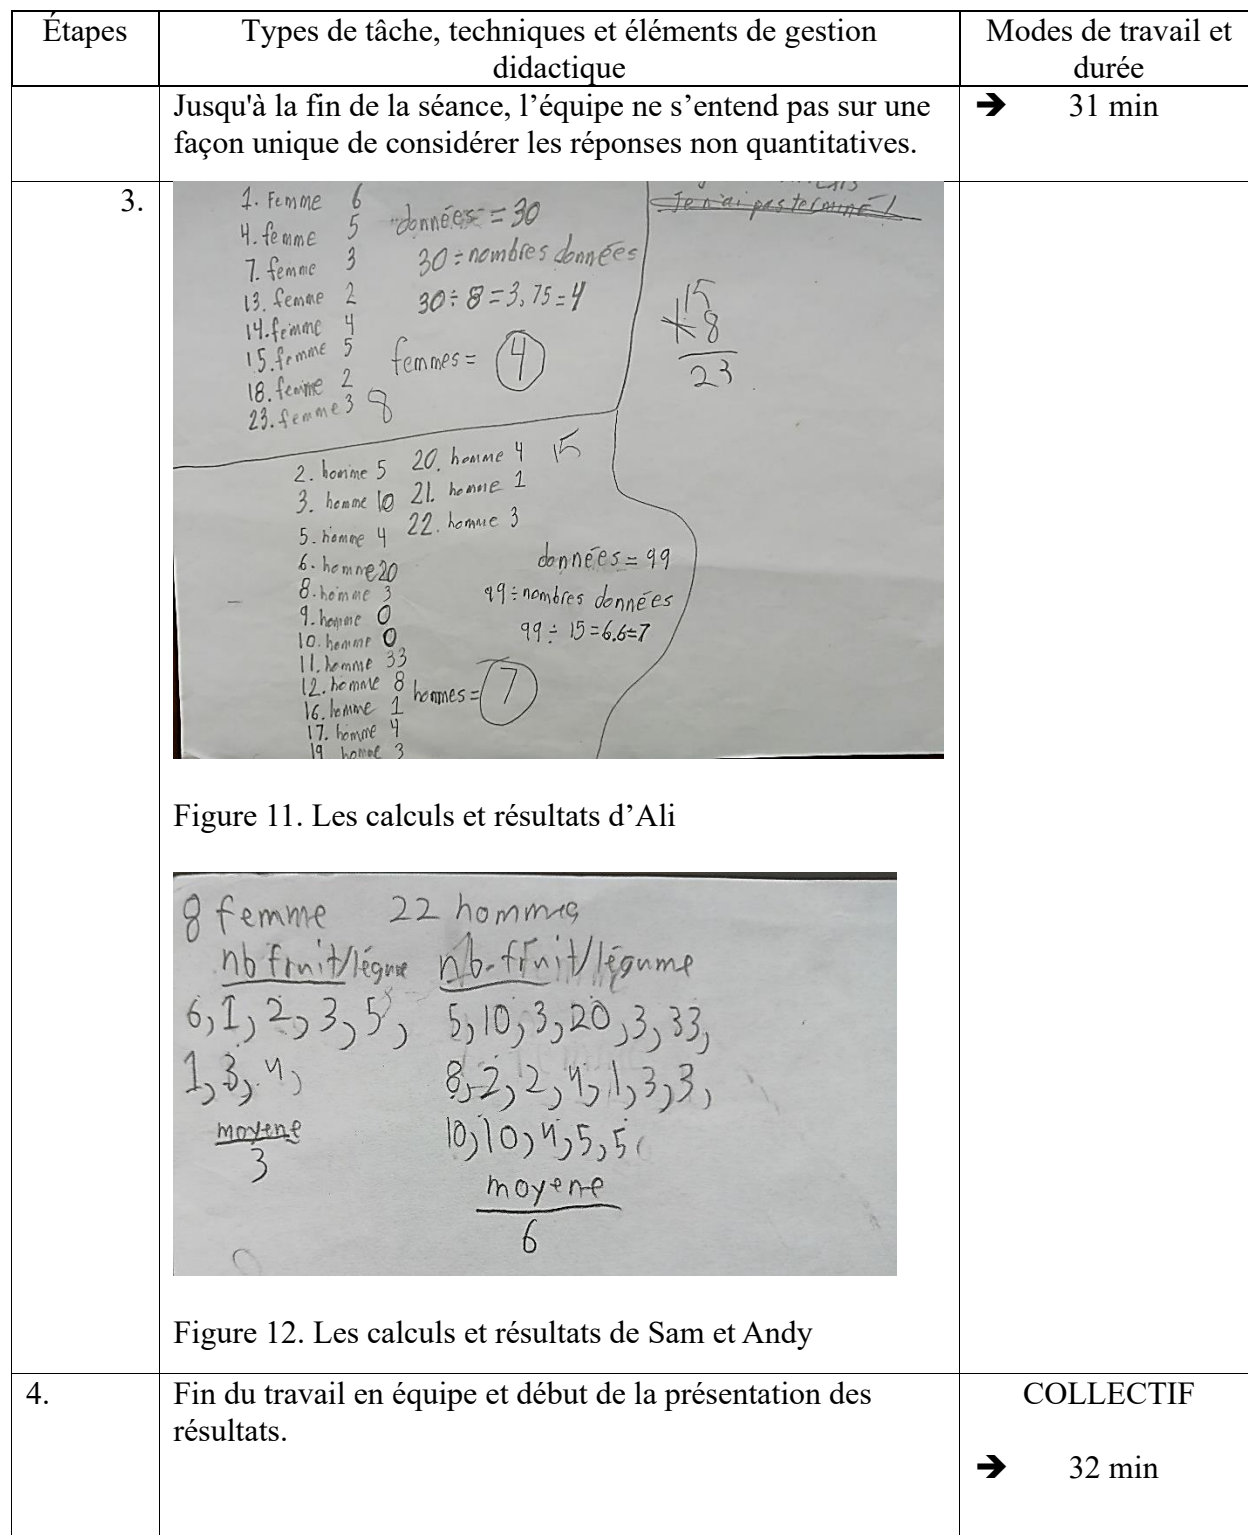 Étapes
Types de tâche, techniques et éléments de gestion
didactique
Modes de travail et
durée
Jusqu'à la fin de la séance, l’équipe ne s’entend pas sur une
façon unique de considérer les réponses non quantitatives.
➔ 31 min
3.
1. Femme 6
4. femme 5
7. femme 3
13. femme 2
14. femme 4
15. femme 5
18. femme 2
23. femme 3 8
données = 30
30 ÷ nombres données
30 ÷ 8 = 3,75 = 4
femmes = 4
Je n'ai pas terminé !
15
+ 8
23
2. homme 5
3. homme 10
5. homme 4
6. homme 20
8. homme 3
9. homme 0
10. homme 0
11. homme 33
12. homme 8
16. homme 1
17. homme 4
19 homme 3
20. homme 4 15
21. homme 1
22. homme 3
données = 99
99 ÷ nombres données
99 ÷ 15 = 6.6 = 7
hommes = 7
Figure 11. Les calculs et résultats d’Ali
8 femme
nb fruit/légume
6, 1, 2, 3, 5,
1, 3, 4,
moyene
3
22 hommes
nb-fruit/légume
5, 10, 3, 20, 3, 33,
8, 2, 2, 4, 1, 3, 3,
10, 10, 4, 5, 5
moyene
6
Figure 12. Les calculs et résultats de Sam et Andy
4.
Fin du travail en équipe et début de la présentation des
résultats.
COLLECTIF
➔ 32 min